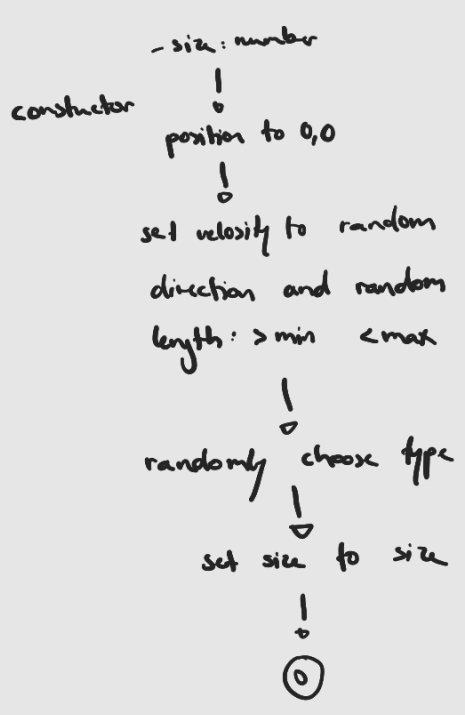 - size: number
constuctor
position to 0,0
set velosity to random
direction and random
length: > min < max
randomly choose type
set size to size